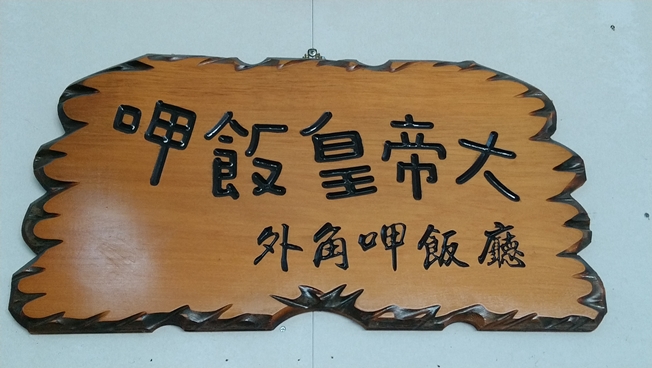 呷飯皇帝大
外角呷飯廳